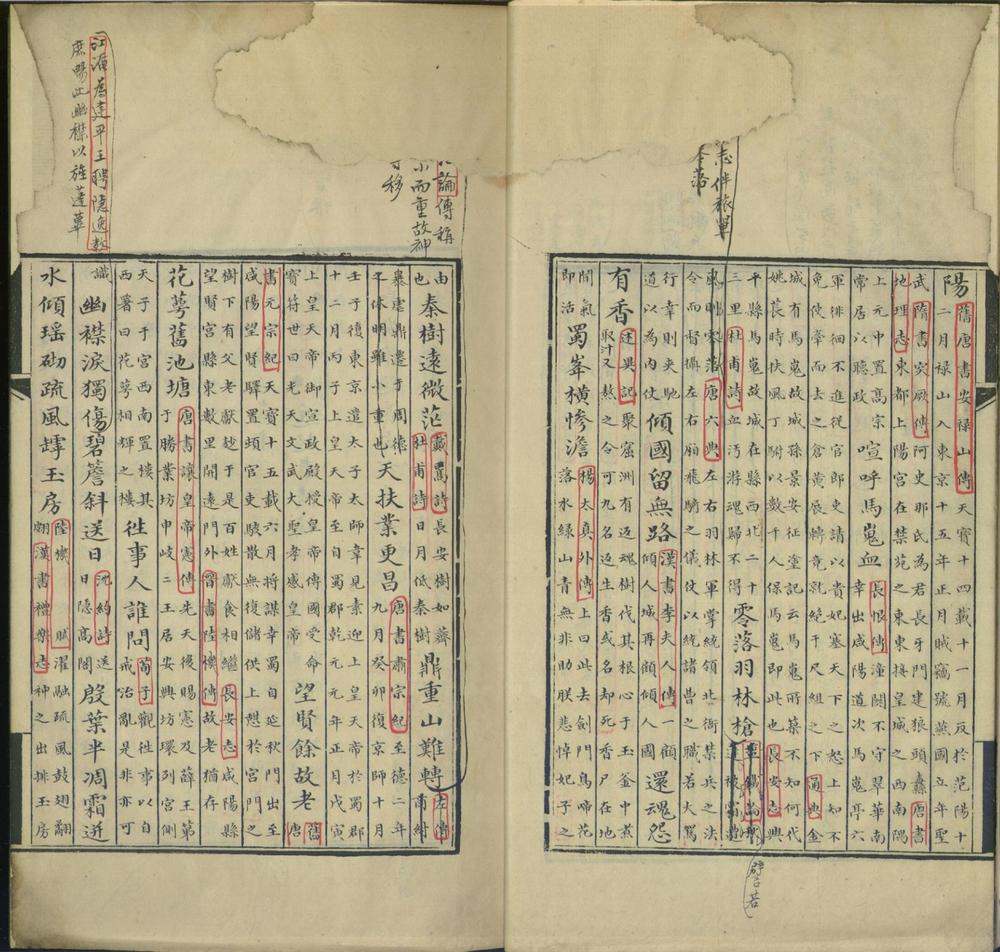 志伴旅單
本落
陽
舊唐書安祿山傳天寶十四載十一月反於范陽十
二月祿山入東京十五年正月賊竊號燕國立年聖
武隋書突厥傳阿史那氏為君長牙門建狼頭纛唐書
地理志東都上陽宮在禁苑之東東接皇城之西南隅
上元中置高宗
常居以聽政
喧呼馬嵬血
長恨傳潼關不守翠華南
幸出咸陽道次馬嵬亭六
軍徘徊不進從官郎吏請以貴妃塞天下之怒上知不
免使牽而去之倉黃展轉竟就絕于尺組之下通典金
城有馬嵬故城孫景安征塗記云馬嵬所築不知何代
姚萇時扶風丁附以數千人保馬嵬即此也長安志興
平縣馬嵬故城在縣西北二十
三里杜甫詩血汚游魂歸不得
零落羽林槍
譬若
唐六典左右羽林軍掌統領北衙禁兵之法
令而督攝左右廂飛騎之儀仗以統諸曹之職若大駕
行幸則夾馳
道以為內仗
傾國留無路
漢書李夫人傳一顧
傾人城再顧傾人國
還魂怨
有香
述異記聚窟洲有返魂樹伐其根心于玉釜中煮
取汁又熬之令可九名返生香或名却死香尸在地
聞氣
即活
蜀峯橫慘澹
楊太真外傳上曰此去劍門鳥啼花
落水綠山青無非助朕悲悼妃子之
論傳稱
小而重故神
移
江淹為建平王聘隱逸教
庶暢此幽襟以旌蓬蓽
由
也
秦樹遠微茫
戴暠詩長安樹如薺
杜甫詩日月低秦樹
鼎重山難轉
左傳
商紂
暴虐鼎遷于周德
休明雖小重也
天扶業更昌
唐書肅宗紀至德二年
九月癸卯復京師十月
壬子復東京遣太子太師韋見素迎上皇天帝於蜀郡
十二月丙子上皇天帝至自蜀郡乾元元年正月戊寅
上皇天帝御宣政殿授皇帝傳國受命
寶符世曰光天文武大聖孝感皇帝
望賢餘故老
舊
唐
書元宗紀天寶十五載六月將謀幸蜀自延秋門出至
咸陽望賢驛置頓官吏駭散無復儲供上憇於宮門之
樹下有父老獻麨于是百姓獻食相繼長安志咸陽縣
望賢宮縣東數里開遠門外晉書陸機傳故老猶存
花萼舊池塘
唐書讓皇帝憲傳先天後賜憲及薛王第
于勝業坊申岐二王居安興坊環列宮側
天子于宮西南置樓其
西署曰花萼相輝之樓
往事人誰問
荀子觀往事以自
戒治亂是非亦可
識
幽襟淚獨傷碧簷斜送日
沈約詩送
日隱高閣
殷葉半凋霜迸
水傾瑤砌疏風罅玉房
陸機賦濯融疏風鼓翅翩
翩漢書禮樂志神之出排玉房